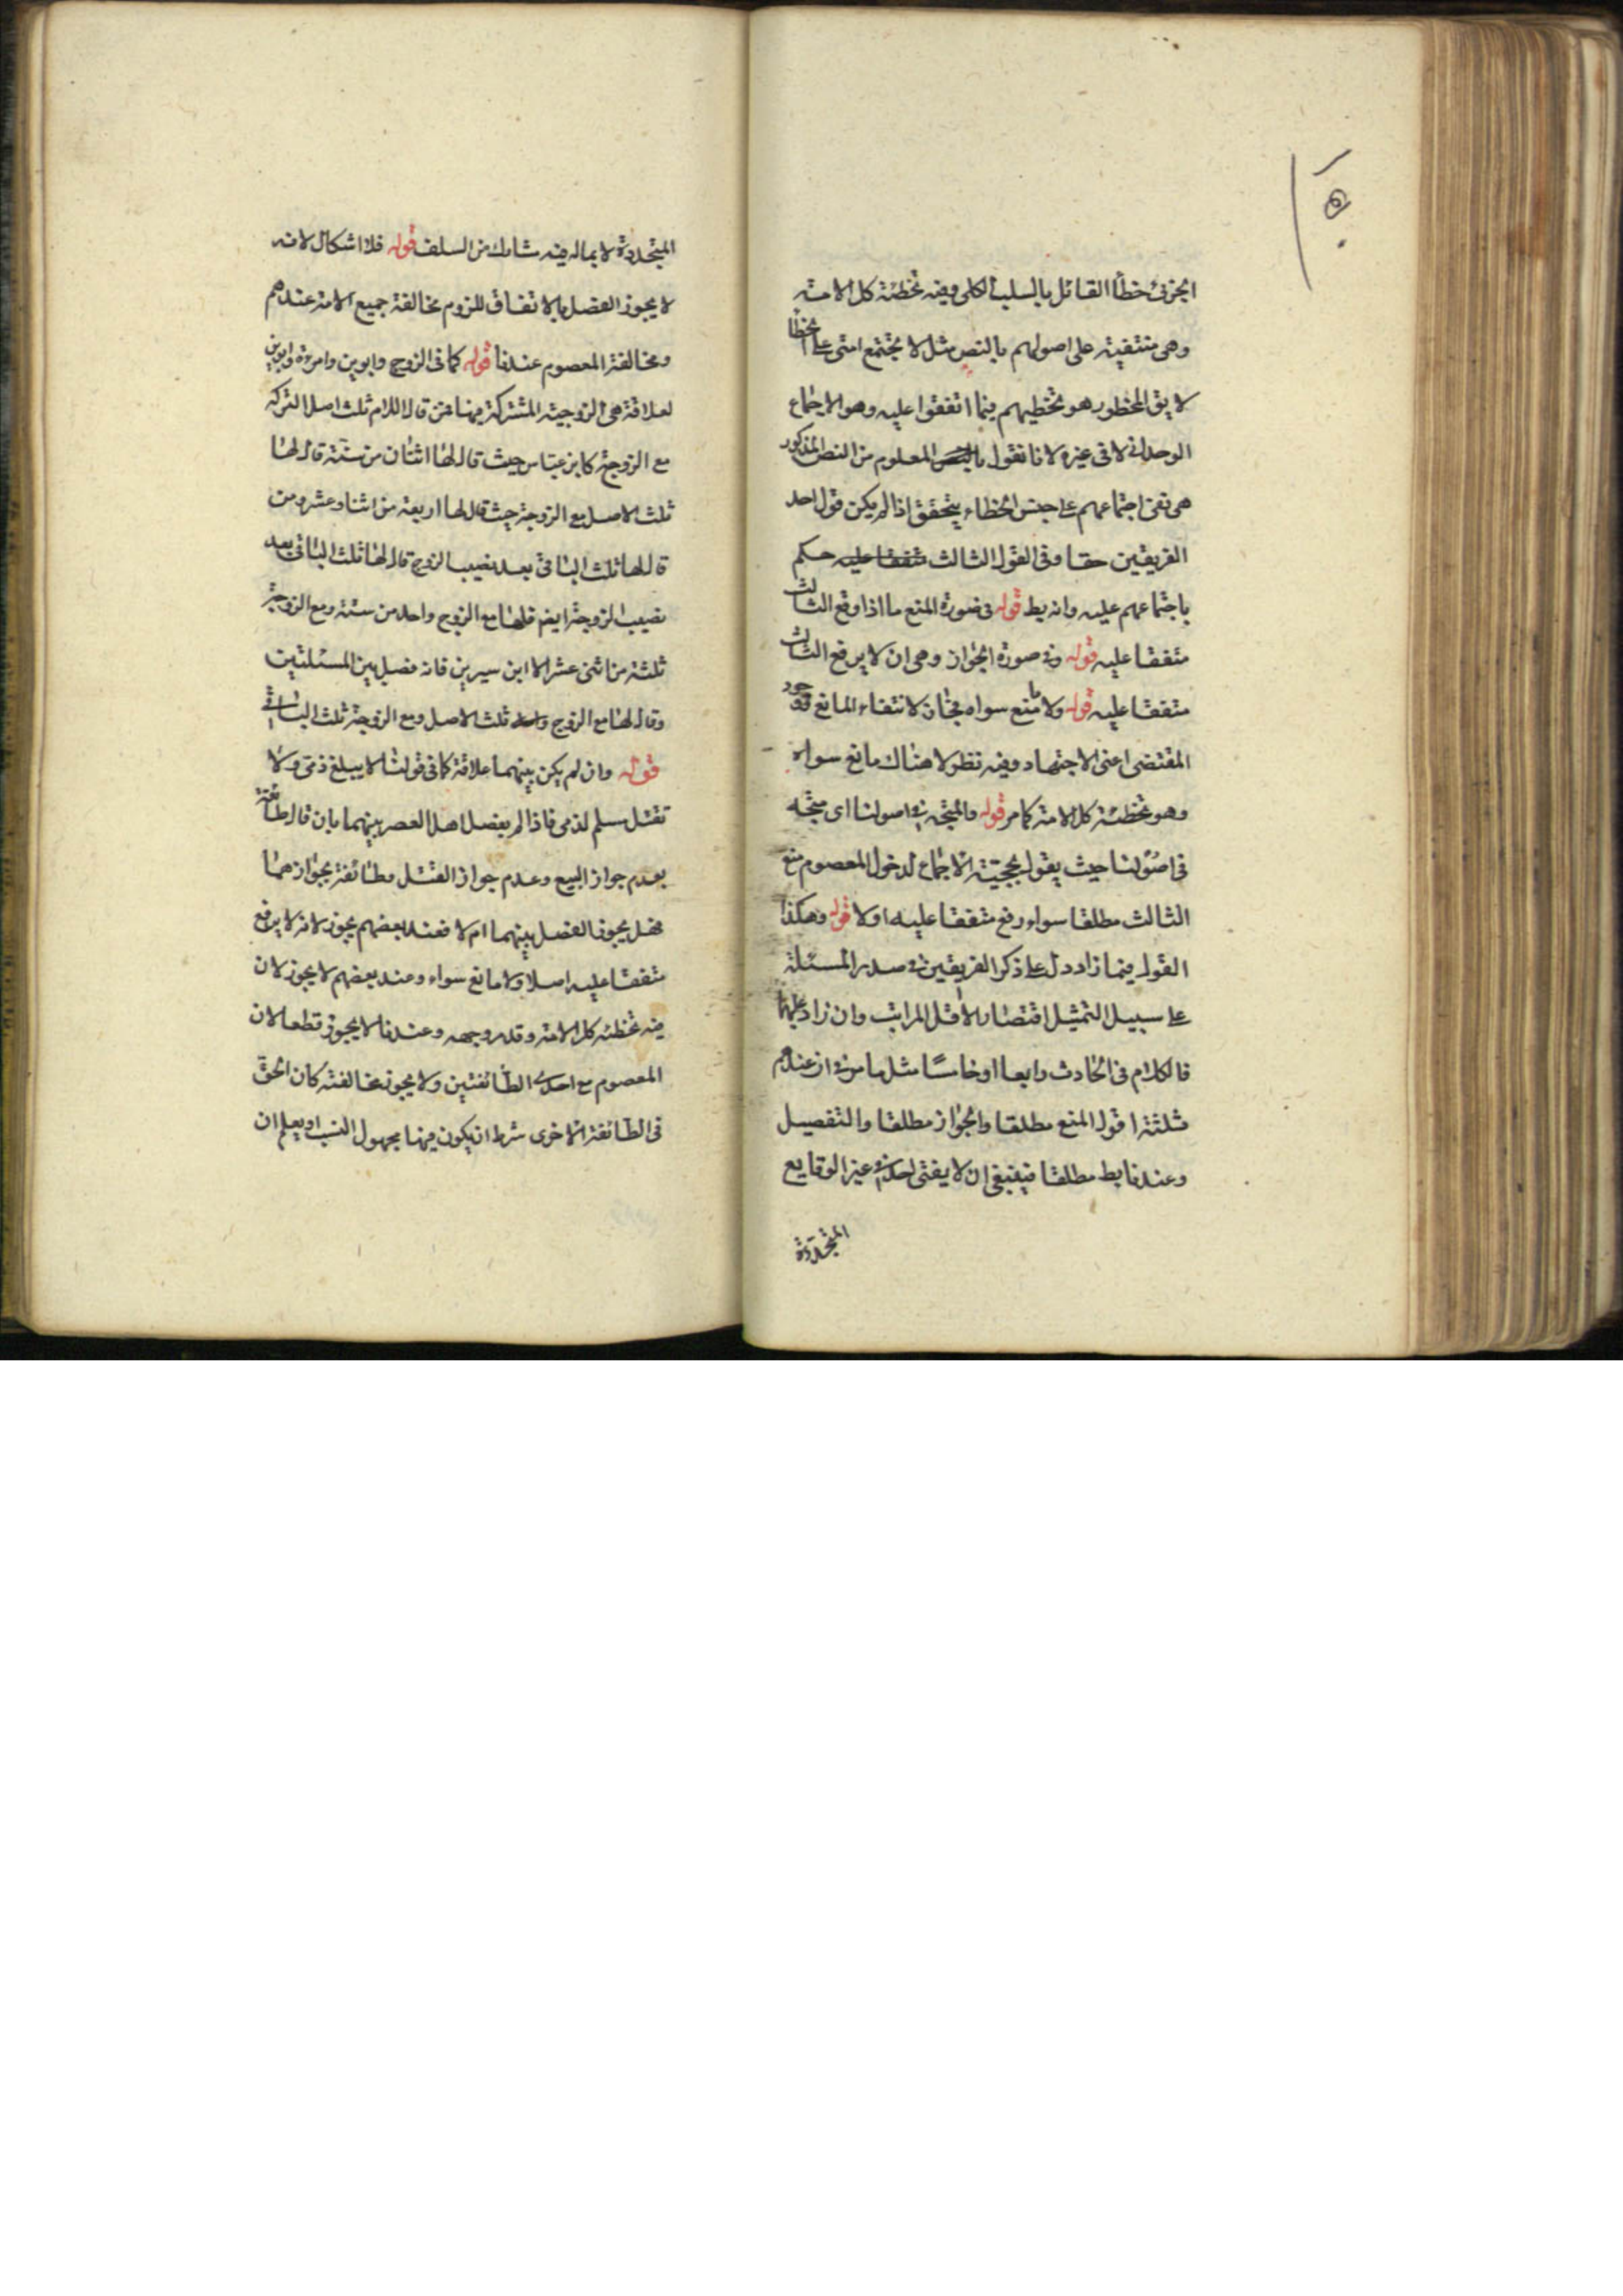 الجزئى خطأ القائل بالسلب الكلى وفيه تخطئة كل الامة
وهى منتفية على اصولهم بالنص مثل لا يجتمع امتى على الخطأ
لا يق المحظور هو تخطيهم فيما اتفقوا عليه وهو الاجماع
الوحدانى لا فى غيره لانا نقول المعلوم من النص المذكور
هى نفى اجتماعهم على جنس الخطاء يتحقق اذا لم يكن قول احد
الفريقين حقا وفى القول الثالث حكم
باجتماعهم عليه وانه بط قوله فى صورة المنع ما اذا وقع الثالث
متفقا عليه قوله وفى صورة الجواز وهى ان لا يرفع الثالث
متفقا عليه قوله ولا مانع سواه فجاز لانتفاء المانع ووجود
المقتضى اعنى الاجتهاد وفيه نظر لا هناك مانع سواه
وهو تخطئة كل الامة كما مر قوله والمتجه فى اصولنا اى متجه
فى اصولنا حيث يقول بحجية الاجماع لدخول المعصوم منع
الثالث مطلقا سواء رفع متفقا عليه او لا قوله وهكذا
القول فيما زاد دل على ذكر الفريقين فى صدر المسئلة
على سبيل التمثيل اقتضارا لاقل المراتب وان زاد عليها
فالكلام فى الحادث رابعا او خامسا مثل ما مر فى از عندهم
ثلثة اقول المنع مطلقا والجواز مطلقا والتفصيل
وعندنا بط مطلقا فينبغى ان لا يفتى احد فى غير الوقايع
المتجددة
المتجددة لا بماله فيه شارك من السلف قوله فلا اشكال لانه
لا يجوز الفصل بالاتفاق للزوم مخالفة جميع الامة عندهم
ومخالفة المعصوم عندنا قوله كما فى الزوج وابوين وامرءة وابوين
لعلاقة هى الزوجية المشتركة فيهما فمن قال للام ثلث اصل التركة
مع الزوجة كابن عباس حيث قال لها اثنان من ستة قال لها
ثلث الاصل مع الزوجة حيث قال لها اربعة من اثنا وعشر ومن
قال لها ثلث الباقى بعد نصيب الزوج قال لها ثلث الباقى بعد
نصيب الزوجة ايضم فلها مع الزوج واحد من ستة ومع الزوجة
ثلثة من اثنى عشر الا ابن سيرين فانه فصل بين المسئلتين
وقال لها مع الزوج ثلث الاصل ومع الزوجة ثلث الباقى
قوله وان لم يكن بينهما علاقة كما فى قولنا لا يبلغ ذمى ولا
تقتل سلم لذمى فاذا لم يفصل اهل العصر بينهما بان قال طائفة
بعدم جواز البيع وعدم جواز القتل وطائفة بجوازهما
فهل يجوز الفصل بينهما ام لا فعند بعضهم يجوز لانه لا يرفع
متفقا عليه اصلا ولا مانع سواء وعند بعضهم لا يجوز لان
فيه تخطئه كل الامة وقد مر وجهه وعندنا لا يجوز قطعا لان
المعصوم مع احدى الطائفتين ولا يجوز مخالفته كان الحق
فى الطائفة الاخرى شرط ان يكون فيها مجهول النسب او يعلم ان